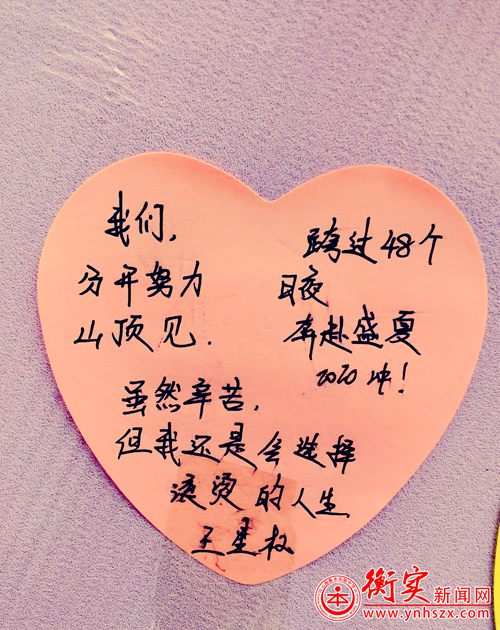 我们,
分开努力
山顶见.
跨过48个
日夜
奔赴盛夏
2020冲!
虽然辛苦,
但我还是会选择
滚烫的人生
王星权
衡实新闻网
www.ynhszx.com